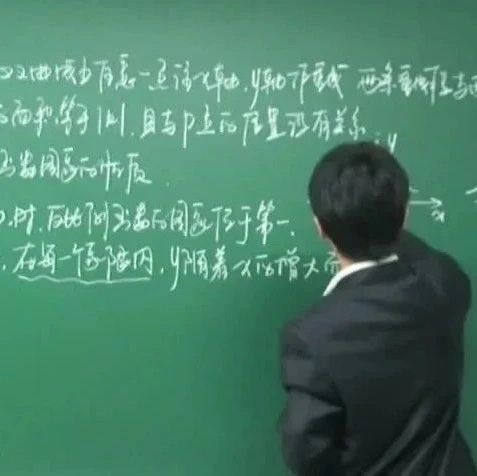 双曲线上任意一点证x轴、y轴作垂线 两条垂线段与
的面积等于|k|,且与P点的位置没有关系 y
函数图象的性质.
时,反比例函数的图象位于第一、 x
在每一个象限内,y随着x的增大而